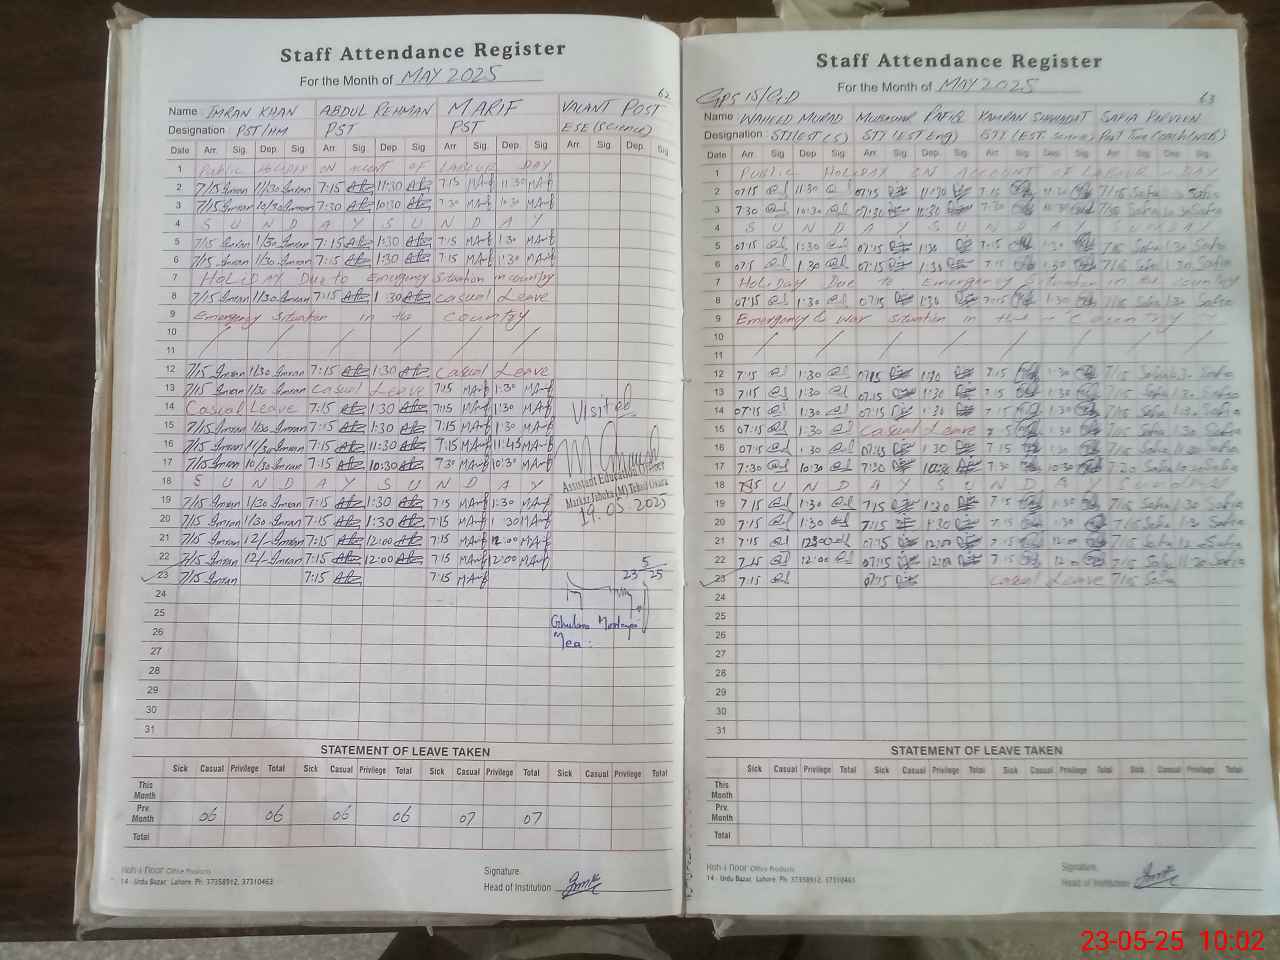 Staff Attendance Register
For the Month of MAY 2025
62
Name IMRAN KHAN ABDUL REHMAN MARIF VACANT POST
Designation PST/HM PST PST ESE (Science)
Date Arr. Sig. Dep. Sig. Arr. Sig. Dep. Sig. Arr. Sig. Dep. Sig. Arr. Sig. Dep. Sig
1 Public Holiday on account of LABOUR DAY
2 7/15 Imran 11/30 Imran 7:15 11:30 7:15 MArif 11:30 MArif
3 7/15 Imran 10/30 Imran 7:30 10:30 7:30 MArif 10:30 MArif
4 S U N D A Y S U N D A Y
5 7/15 Imran 1/30 Imran 7:15 1:30 7:15 MArif 1:30 MArif
6 7/15 Imran 1/30 Imran 7:15 1:30 7:15 MArif 1:30 MArif
7 Holiday Due to Emergency Situation in country
8 7/15 Imran 1/30 Imran 7:15 1:30 Casual Leave
9 Emergency Situation in the country
10
11
12 7/15 Imran 1/30 Imran 7:15 1:30 Casual Leave
13 7/15 Imran 1/30 Imran Casual Leave 7:15 MArif 1:30 MArif
14 Casual Leave 7:15 1:30 7:15 MArif 1:30 MArif
15 7/15 Imran 1/30 Imran 7:15 1:30 7:15 MArif 1:30 MArif
16 7/15 Imran 11/30 Imran 7:15 11:30 7:15 MArif 11:45 MArif
17 7/15 Imran 10/30 Imran 7:15 10:30 7:30 MArif 10:30 MArif
18 S U N D A Y S U N D A Y
19 7/15 Imran 1/30 Imran 7:15 1:30 7:15 MArif 1:30 MArif
20 7/15 Imran 1/30 Imran 7:15 1:30 7:15 MArif 1:30 MArif
21 7/15 Imran 12/- Imran 7:15 12:00 7:15 MArif 12:00 MArif
22 7/15 Imran 12/- Imran 7:15 12:00 7:15 MArif 12:00 MArif
23 7/15 Imran 7:15 7:15 MArif
24
25
26
27
28
29
30
31
Visited
Assistant Education Officer
19.05.2025
23/5/25
Ghulam
Mea:
STATEMENT OF LEAVE TAKEN
Sick Casual Privilege Total Sick Casual Privilege Total Sick Casual Privilege Total Sick Casual Privilege Total
This Month
Prv. Month 06 06 06 06 07 07
Total
Koh-i-Noor Office Products
14 - Urdu Bazar, Lahore. Ph: 37358912, 37310463
Signature.
Head of Institution
Staff Attendance Register
For the Month of MAY 2025
63
GPS 15/G.D
Name WAHEED MURAD Mubashar Rafiq KAMRAN SHAUKAT SAFIA PARVEEN
Designation STI (EST CS) STI (EST Eng) STI (EST. Science) Part Time
Date Arr Sig Dep. Sig Arr. Sig. Dep. Sig. Arr Sig Dep Sig Arr Sig Dep. Sig.
1 PUBLIC HOLIDAY ON ACCOUNT OF LABOUR - DAY
2 07:15 11:30 07:15 11:30 7:15 11:30 7/15 Safia Safia
3 7:30 10:30 07:30 10:30 7:30 10:30 7/30 Safia Safia
4 S U N D A Y S U N D A Y
5 07:15 1:30 07:15 1:30 7:15 1:30 7/15 Safia 1:30 Safia
6 07:15 1:30 07:15 1:30 7:15 1:30 7/15 Safia 1:30 Safia
7 Holiday Due to Emergency Situation in the country
8 07:15 1:30 07:15 1:30 7:15 1:30 7/15 Safia 1:30 Safia
9 Emergency & war Situation in the Country
10
11
12 7:15 1:30 07:15 1:30 7:15 1:30 7/15 Safia Safia
13 7:15 1:30 07:15 1:30 7:15 1:30 7/15 Safia 1:30 Safia
14 07:15 1:30 07:15 1:30 7:15 1:30 7/15 Safia 1:30 Safia
15 07:15 1:30 Casual Leave 1:30 7/15 Safia 1:30 Safia
16 07:15 11:30 07:15 11:30 7:15 7/15 Safia Safia
17 7:30 10:30 7:30 10:30 7:30 10:30 Safia Safia
18 S U N D A Y S U N D A Y
19 7:15 1:30 7:15 1:30 7:15 1:30 7/15 Safia 1:30 Safia
20 7:15 1:30 7:15 1:30 7:15 1:30 7/15 Safia 1:30 Safia
21 7:15 12:00 07:15 12:00 7:15 12:00 7/15 Safia 12 Safia
22 7:15 12:00 07:15 12:00 7:15 12:00 7/15 Safia Safia
23 7:15 07:15 Casual Leave 7/15 Safia
24
25
26
27
28
29
30
31
STATEMENT OF LEAVE TAKEN
Sick Casual Privilege Total Sick Casual Privilege Total Sick Casual Privilege Total Sick Casual Privilege Total
This Month
Prv. Month
Total
Koh-i-Noor Office Products
14 - Urdu Bazar, Lahore. Ph: 37358912, 37310463
Signature.
Head of Institution
23-05-25 10:02